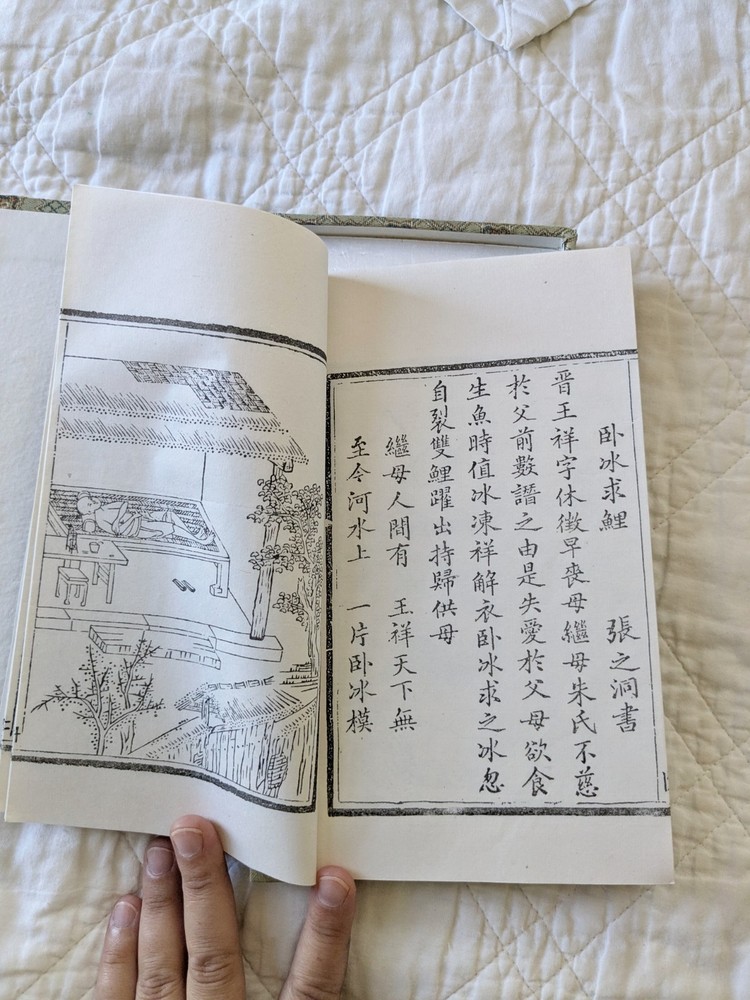 卧冰求鯉 張之洞書
晋王祥字休徴早喪母繼母朱氏不慈
於父前數譖之由是失愛於父母欲食
生魚時值冰凍祥解衣卧冰求之冰忽
自裂雙鯉躍出持歸供母
繼母人間有 王祥天下無
至今河水上 一片卧冰模